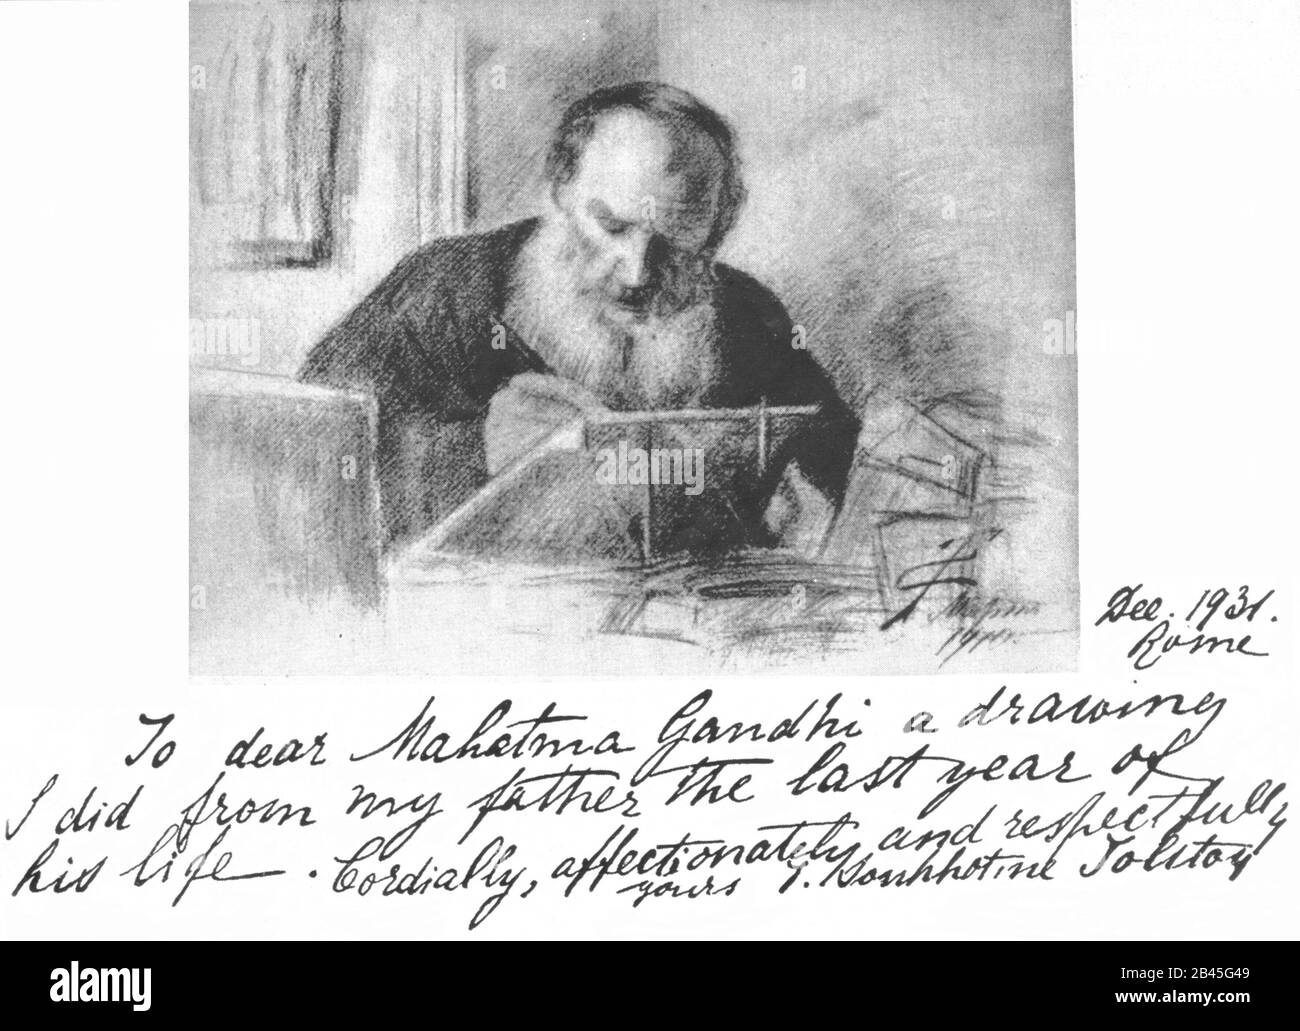 Dec. 1931.
Rome
To dear Mahatma Gandhi a drawing
I did from my father the last year of
his life. Cordially, affectionately and respectfully
yours T. Soukhotine Tolstoy
alamy
Image ID: 2B45G49
www.alamy.com